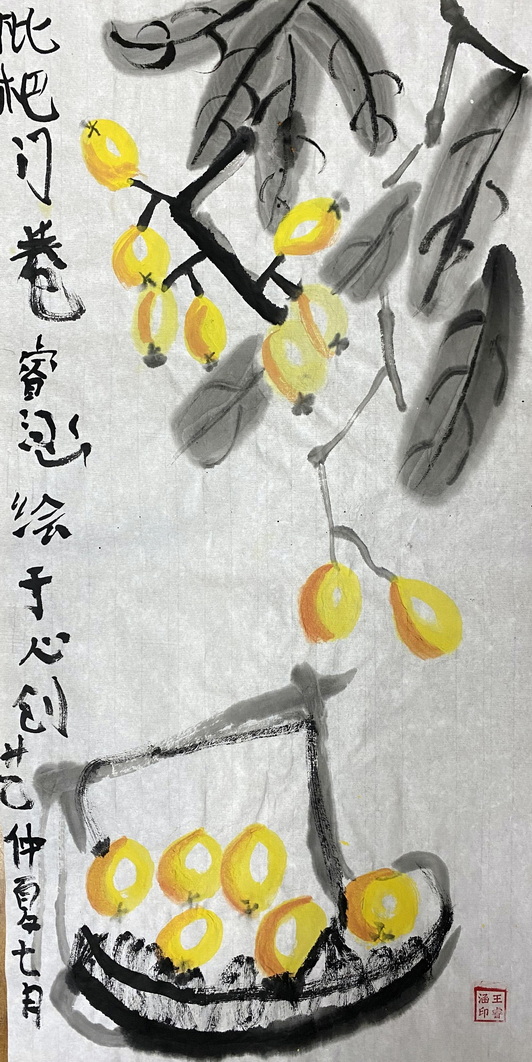 枇杷门巷睿涵绘于心创艺仲夏七月
王睿涵印